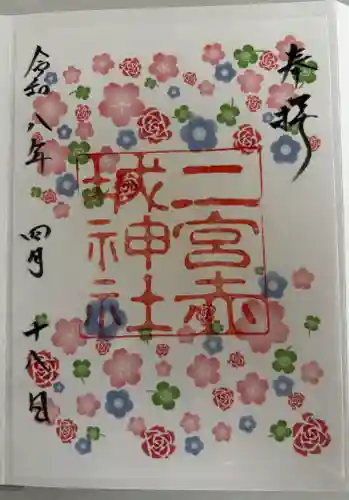 奉拝
二宮赤
城神社
令和八年 四月 十九日